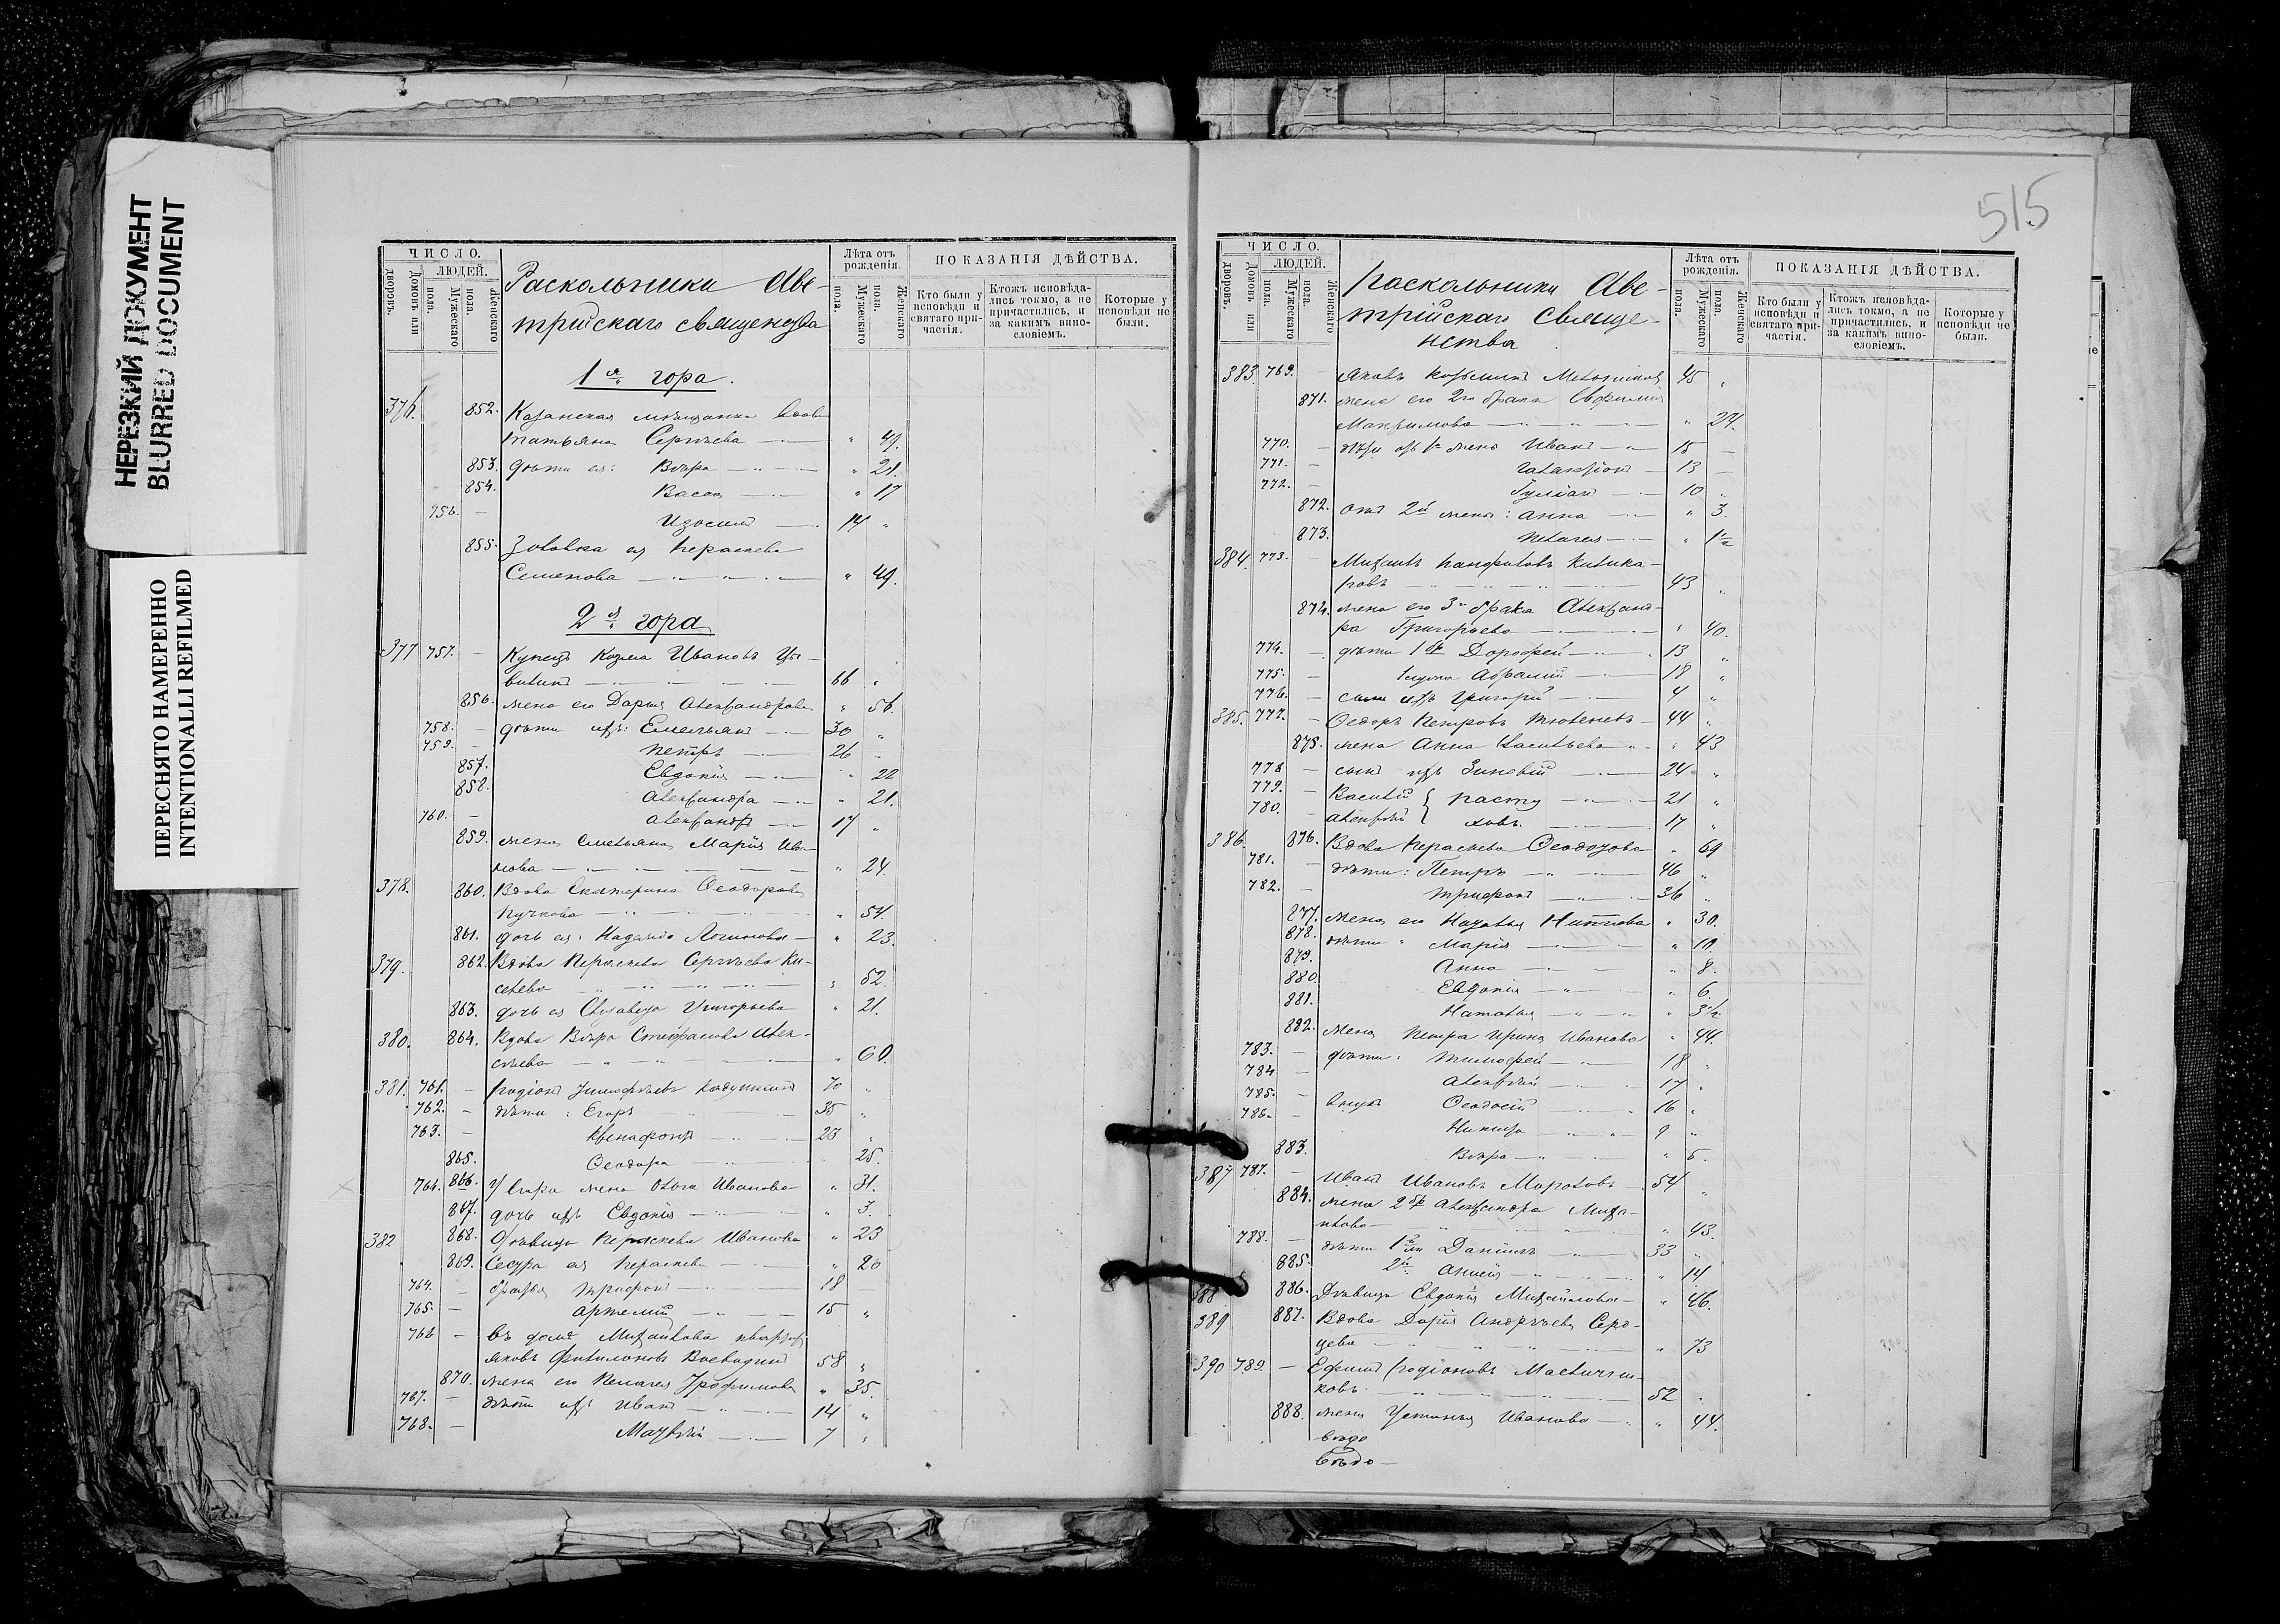 НЕРЕЗКИЙ ДОКУМЕНТ
BLURRED DOCUMENT
ПЕРЕСНЯТО НАМЕРЕННО
INTENTIONALLI REFILMED
ЧИСЛО.
ЛЮДЕЙ.
дворовъ.
Домовъ или
Мужескаго пола.
Женскаго пола.
Раскольники Авс-
трийскаго священства
Лѣта отъ рожденія.
Мужескаго пола.
Женскаго пола.
ПОКАЗАНІЯ ДѢЙСТВА.
Кто были у исповѣди и святаго причастія.
Ктожъ исповѣдались токмо, а не причастились, и за какимъ винословіемъ.
Которые у исповѣди не были.
1я гора.
376. 852. Казанская мѣщанка вдова
Татьяна Сергѣева 49.
853. дѣти ея: Вѣра 21.
854. Васса 17
756. Изосимъ 14
855. Золовка ея Параскева
Семенова 49.
2я гора
377 757. Купецъ Козма Ивановъ
66
856. жена его Дарья Александрова 56.
758. дѣти ихъ: Емельянъ 30
759. Петръ 26
857. Евдокія 22
858. Александра 21.
760. Александръ 17
859. жена Емельяна Марія Ива-
нова 24.
378. 860. Вдова Екатерина Ѳеодорова
Пучкова 54.
861. дочь ея: Надежда Логинова 23.
379. 862. Вдова Параскева Сергѣева Ки-
селева 52.
863. дочь ея Елизавета Григорьева 21.
380. 864. Вдова Вѣра Стефанова Алек-
сѣева 60.
381. 761. Родіонъ Тимофѣевъ 70
762. дѣти: Егоръ 35
763. Ксенофонтъ 23
865. Ѳеодора 25.
764. 866. У Егора жена Ольга Иванова 31.
867. дочь ихъ Евдокія 3.
382 868. Дѣвица Параскева Иванова 23
869. Сестра ея Параскева 20
764. братья Трифонъ 18
765. Артемій 15
766 въ домѣ Михайлова
Яковъ Филимоновъ Воеводинъ 58
870. жена его Пелагея Трофимова 35.
767. дѣти ихъ Иванъ 14
768. Матвѣй 7
515
ЧИСЛО.
ЛЮДЕЙ.
дворовъ.
Домовъ или
Мужескаго пола.
Женскаго пола.
Раскольники Авс-
трійскаго Свяще-
нства
Лѣта отъ рожденія.
Мужескаго пола.
Женскаго пола.
ПОКАЗАНІЯ ДѢЙСТВА.
Кто были у исповѣди и святаго причастія.
Ктожъ исповѣдались токмо, а не причастились, и за какимъ винословіемъ.
Которые у исповѣди не были.
383. 769. Яковъ Козьминъ 45
871. жена его 2го брака Евфимія
Макримова 29.
770. дѣти отъ 1й жены Иванъ 15
771. Галактіонъ 13
772. Гуліанъ 10
872. отъ 2й жены: Анна 3.
873. Пелагея 1½
384. 773. Михаилъ Панфиловъ Килика-
ровъ 43
874. жена его 3го брака Александ-
ра Григорьева 40.
774. дѣти 1й Дорофей 13
775. Абрамій 18
776. сынъ ихъ Григорій 4
385. 777. Ѳедоръ Петровъ Тюленевъ 44
875. жена Анна Васильева 43
778 сынъ ихъ Зиновій 24
779. Василій 21
780. Алексѣй 17
386. 876. Вдова Параскева Ѳеодотова 69
781. дѣти: Петръ 46
782. Трифонъ 36
877. жена его Наталья 30.
878. дѣти Марія 10.
879. Анна 8.
880 Евдокія 6.
881. Наталья 3½
882. жена Петра Ирина Иванова 44.
783. дѣти: Тимофей 18
784 Алексѣй 17
785. Ѳеодосій 16
786. Никита 9
883. Вѣра 5.
387 787. Иванъ Ивановъ Морозовъ 54
884. жена 2 бр. Александра Миха-
йлова 43.
788. дѣти 1й Даніилъ 33
885. 2й Анисія 14
388 886. Дѣвица Евдокія Михайлова 46.
389 887. Вдова Дарія Андреева Серд-
цева 73
390 789. Ефимъ Родіоновъ Масленни-
ковъ 52
888. жена Устинья Иванова 44.